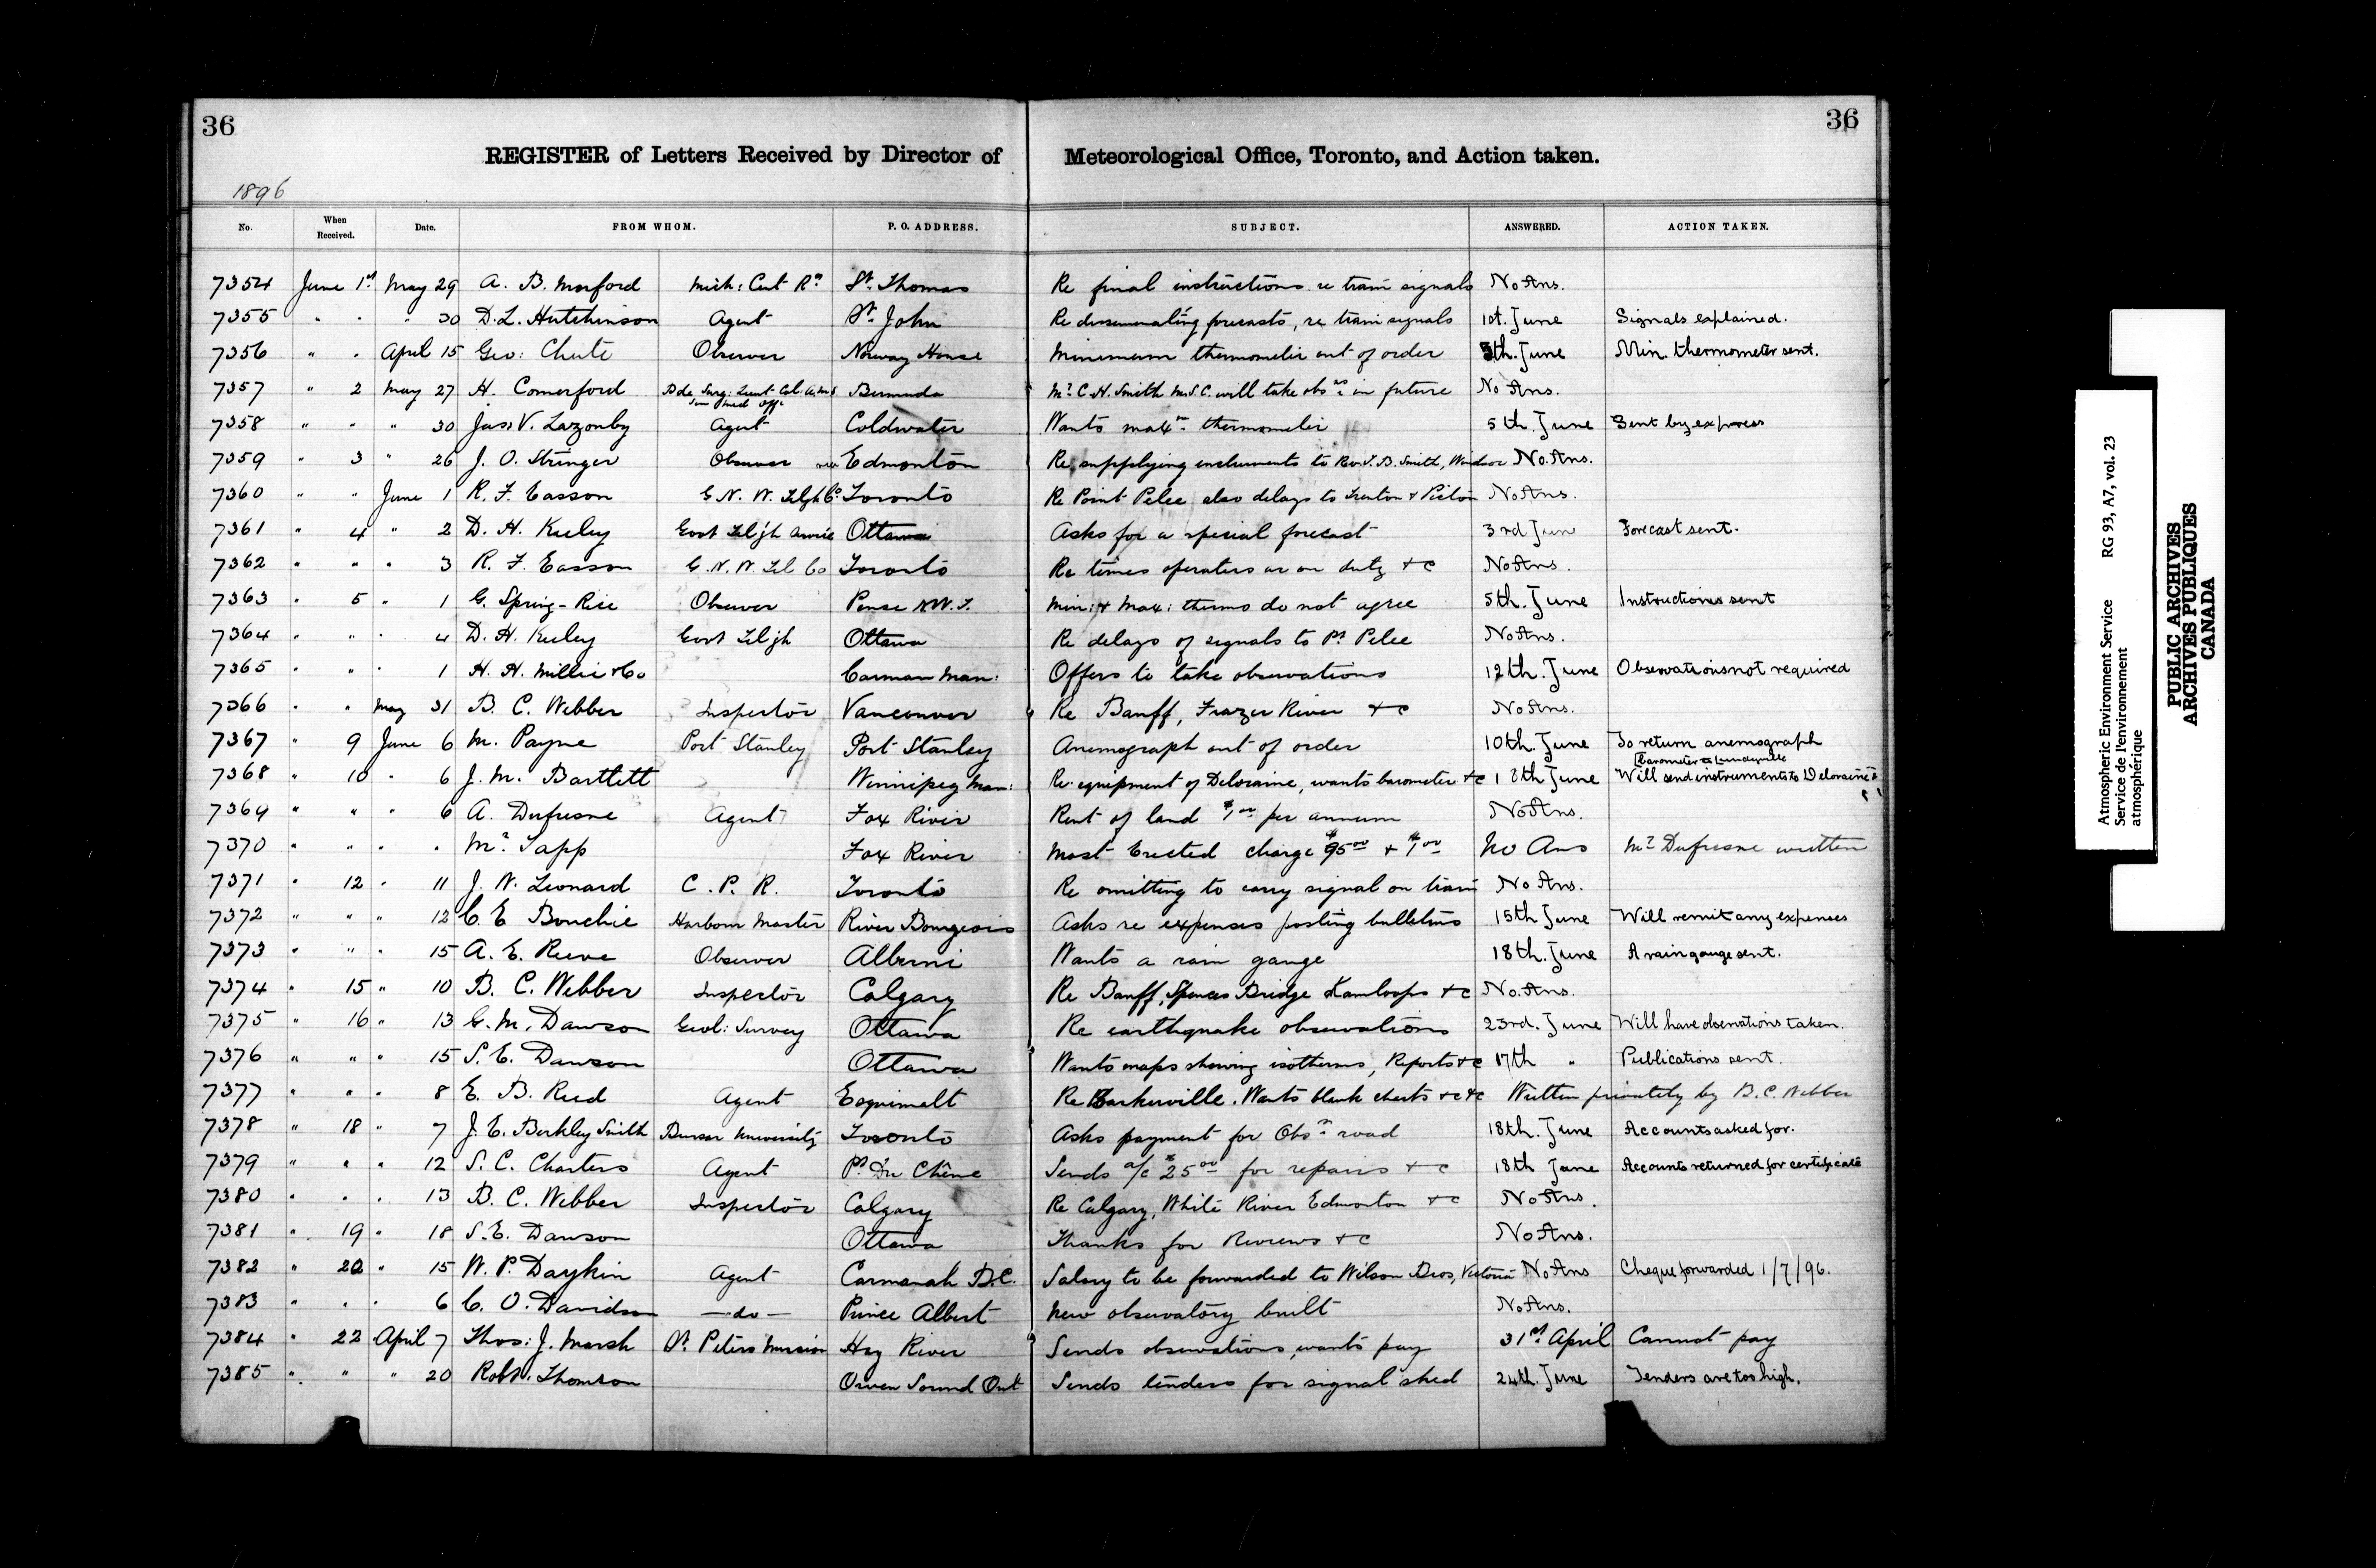 36
36
REGISTER of Letters Received by Director of Meteorological Office, Toronto, and Action taken.
1896
No. When Received. Date. FROM WHOM. P. O. ADDRESS. SUBJECT. ANSWERED. ACTION TAKEN.
7354 June 1st May 29 A. B. Morford Mich: Cent Rd St. Thomas Re final instructions re train signals No Ans.
7355 " " " 30 D. L. Hutchinson Agent St. John Re disseminating forecasts, re train signals 1st. June Signals explained.
7356 " " April 15 Geo: Chute Observer Norway House Minimum thermometer out of order 5th. June Min. thermometer sent.
7357 " 2 May 27 H. Comerford Bde Surg: Lieut Col: A.M.S Sen Med Offr Bermuda Mr. C. H. Smith M.S.C. will take obsns in future No Ans.
7358 " " " 30 Jas. V. Lazonby Agent Coldwater Wants maxm thermometer 5th. June Sent by express
7359 " 3 " 26 J. O. Stringer Observer Edmonton Re supplying instruments to Rev. T. B. Smith, Windsor No. Ans.
7360 " " June 1 R. F. Easson G. N. W. Telgh Co Toronto Re Point Pelee also delays to Trenton & Picton No Ans.
7361 " 4 " 2 D. H. Keeley Govt Telgh Service Ottawa Asks for a special forecast 3rd Jun Forecast sent.
7362 " " " 3 R. F. Easson G. N. W. Tel Co Toronto Re times operators are on duty &c No Ans.
7363 " 5 " 1 G. Spring-Rice Observer Pense N.W.T. Min: & Max: thermo do not agree 5th. June Instructions sent
7364 " " " 4 D. H. Keeley Govt Telgh Ottawa Re delays of signals to Pt Pelee No Ans.
7365 " " " 1 H. H. Miller & Co Carman Man: Offers to take observations 12th. June Observations not required
7366 " " May 31 B. C. Webber Inspector Vancouver Re Banff, Frazer River &c No Ans.
7367 " 9 June 6 M. Payne Port Stanley Port Stanley Anemograph out of order 10th. June To return anemograph
7368 " 10 " 6 J. M. Bartlett Winnipeg Man: Re equipment of Deloraine, wants barometer &c 18th June Will send instruments to Deloraine &
Barometer to
7369 " " " 6 A. Dufresne Agent Fox River Rent of land $1.00 per annum No Ans.
7370 " " " " Mr. Tapp Fox River Mast Erected charge $95.00 & $1.00 No Ans Mr Dufresne written
7371 " 12 " 11 J. N. Leonard C. P. R. Toronto Re omitting to carry signal on train No Ans.
7372 " " " 12 C. E Bouchie Harbour Master River Bourgeois Asks re expenses posting bulletins 15th June Will remit any expenses
7373 " " " 15 A. E. Reeve Observer Alberni Wants a rain gauge 18th. June A rain gauge sent.
7374 " 15 " 10 B. C. Webber Inspector Calgary Re Banff, Spences Bridge Kamloops &c No. Ans.
7375 " 16 " 13 G. M. Dawson Geol: Survey Ottawa Re earthquake observations 23rd. June Will have observations taken.
7376 " " " 15 S. E. Dawson Ottawa Wants maps showing isotherms, Reports &c 17th " Publications sent.
7377 " " " 8 E. B. Reed Agent Esquimalt Re Barkerville. Wants blank charts &c &c Written privately by B. C. Webber
7378 " 18 " 7 J. E. Berkley Smith Bursar University Toronto Asks payment for Obsn road 18th. June Accounts asked for.
7379 " " " 12 S. C. Charters Agent Pt Du Chêne Sends a/c $25.00 for repairs &c 18th June Accounts returned for certificate
7380 " " " 13 B. C. Webber Inspector Calgary Re Calgary, White River Edmonton &c No Ans.
7381 " 19 " 18 S. E. Dawson Ottawa Thanks for Reviews &c No Ans.
7382 " 20 " 15 W. P. Daykin Agent Carmanah B.C. Salary to be forwarded to Wilson Bros, Victoria No Ans Cheque forwarded 1/7/96.
7383 " " " 6 C. O. Davidson — do — Prince Albert New observatory built No Ans.
7384 " 22 April 7 Thos: J. Marsh St. Peters Mission Hay River Sends observations, wants pay 31st. April Cannot pay
7385 " " " 20 Robt. Thomson Owen Sound Ont Sends tenders for signal shed 24th. June Tenders are too high.
Atmospheric Environment Service RG 93, A7, vol. 23
Service de l'environnement
atmosphérique
PUBLIC ARCHIVES
ARCHIVES PUBLIQUES
CANADA